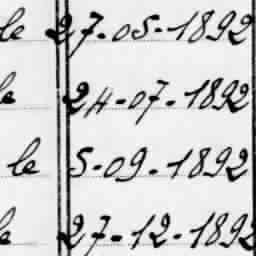 le 27-05-1892
le 24-07-1892
le 5-09-1892
le 27-12-1892